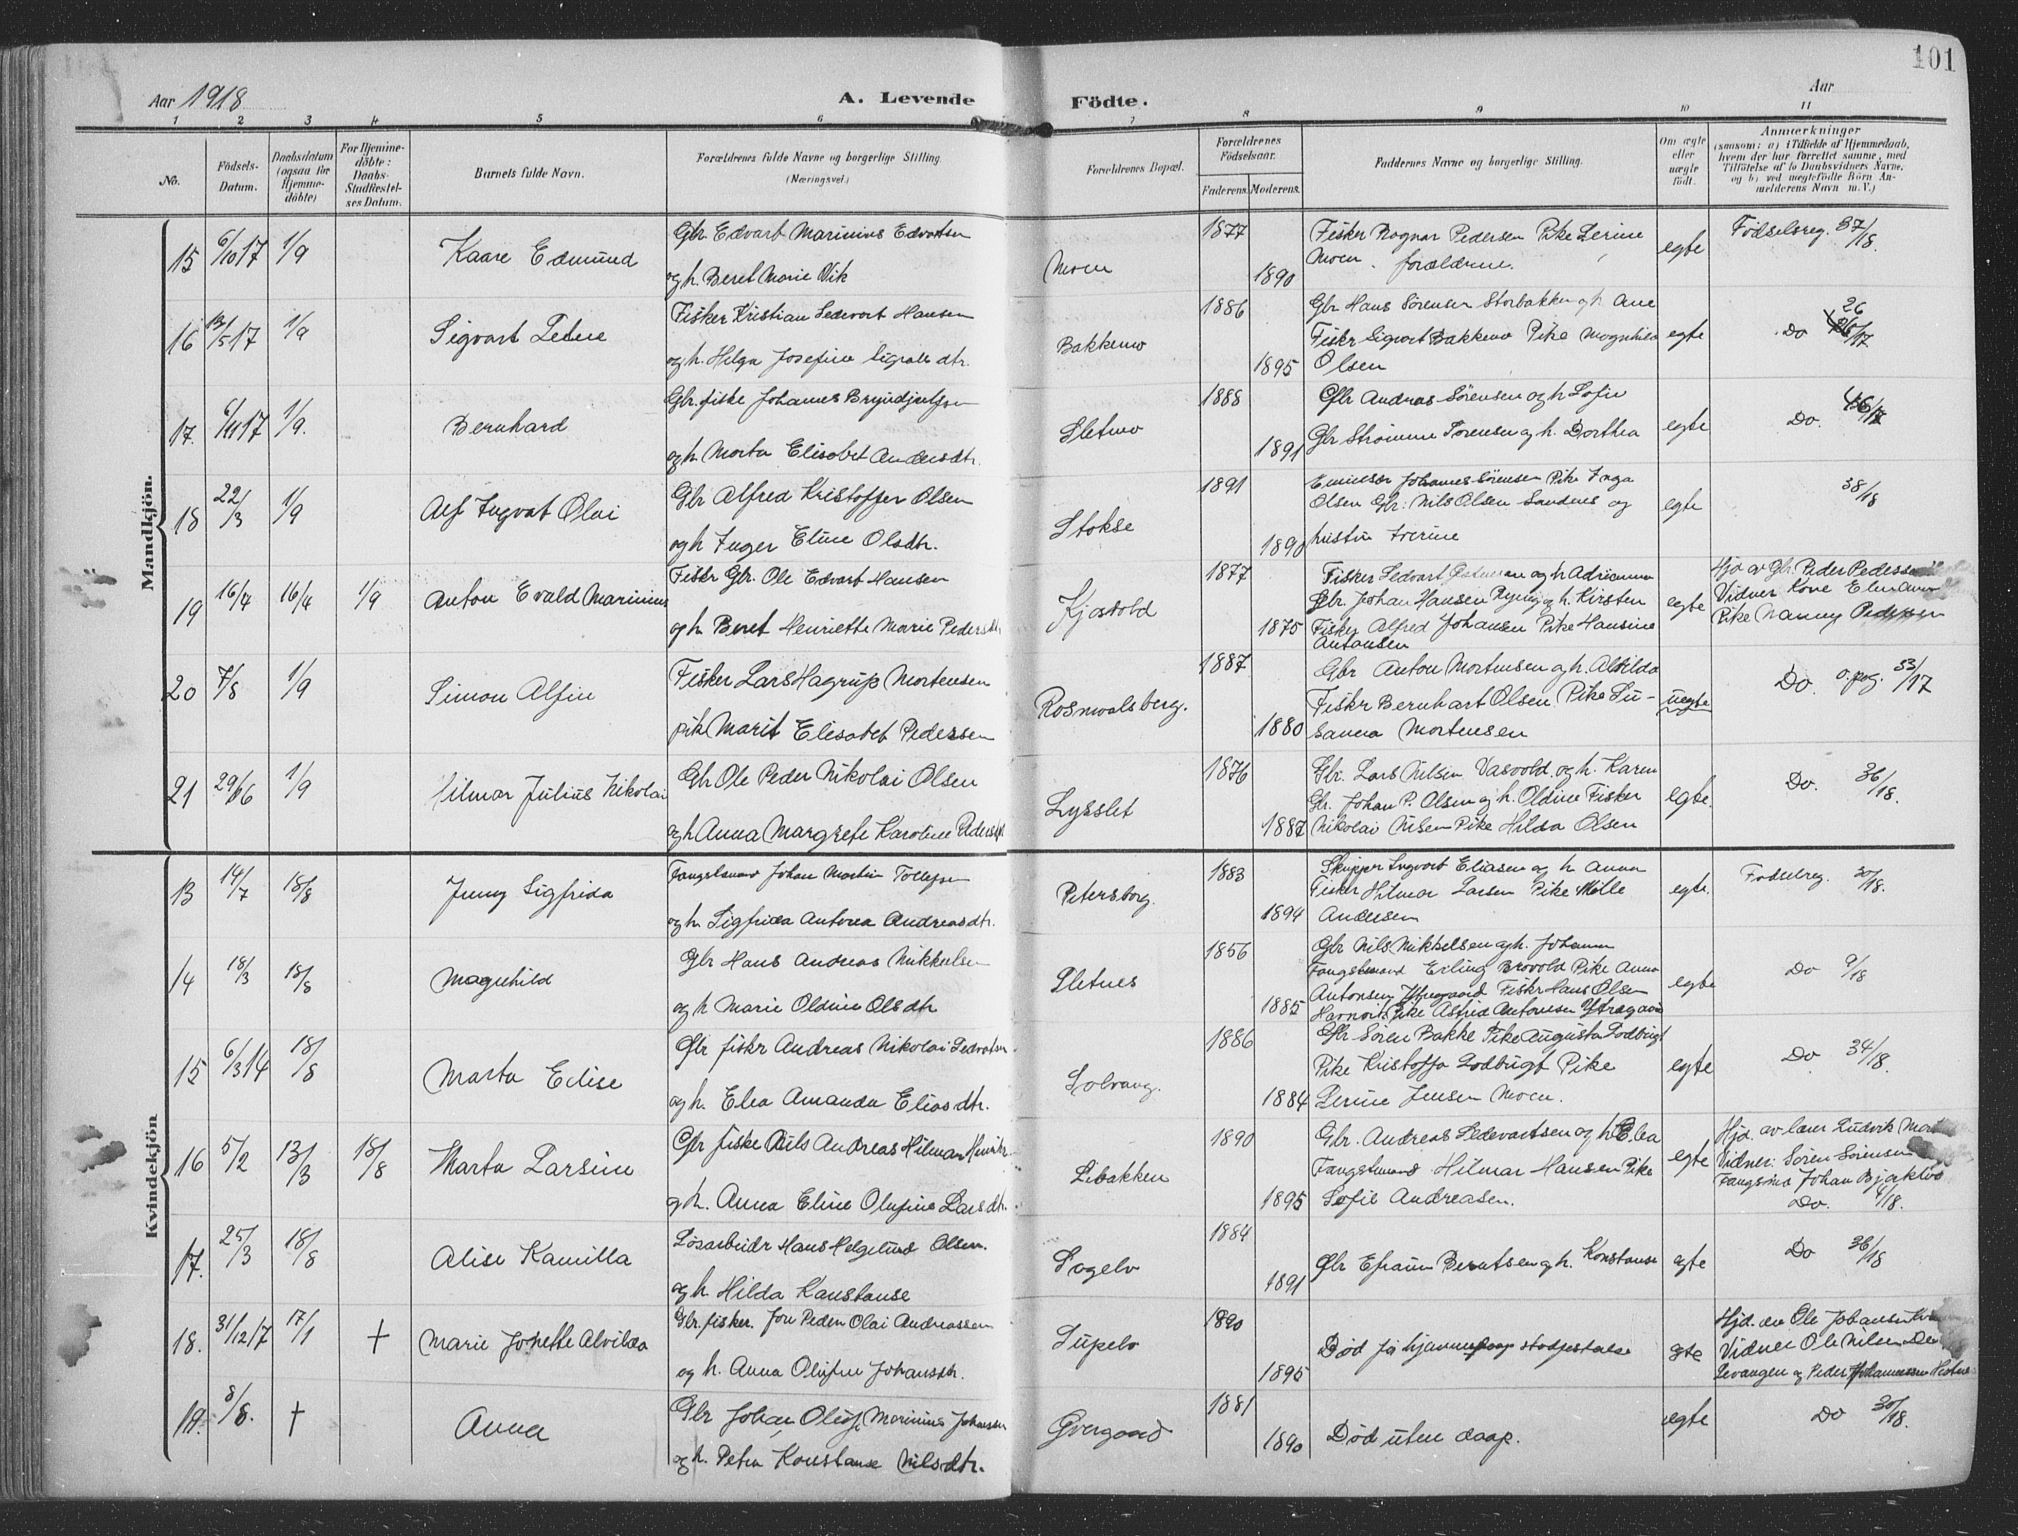 101
Aar 1918 A. Levende Födte. Aar
1 2 3 4 5 6 7 8 9 10 11
No. Födsels-Datum. Daabsdatum (ogsaa for Hjemmedöbte) For Hjemmedöbte: Daabs-Stadfæstelses Datum. Barnets fulde Navn. Forældrenes fulde Navne og borgerlige Stilling. (Næringsvei.) Forældrenes Bopæl. Forældrenes Födselsaar. Faderens. Moderens. Faddernes Navne og borgerlige Stilling. Om ægte eller uægte födt. Anmærkninger (saasom: a) i Tilfælde af Hjemmedaab, hvem der har forrettet samme, med Tilföielse af to Daabsvidners Navne, og b) ved uægtefödte Börn Anmelderens Navn m. V.)
Mandkjön.
15 6/10 17 1/9 Kaare Edmund Gbr. Edvart Marinius Edvartsen Moen 1877 Fisker Ragnar Pedersen Pike Perine egte Födselsreg. 37/18.
og h. Beret Marie Vik 1890 Moen. forældrene.
16 /5 17 1/9 Sigvart Fisker Kristian Sedevart Hansen Bakkemo 1886 Gbr Hans Sörensen Storbakken og h. Ane egte Do 26/17
og h. Helga Josefine dtr. 1895 Fisker Sigvart Bakkemo Pike Magnhild
Olsen
17. 6/11 17 1/9. Bernhard Gbr. fisker Johannes Bryndjulfsen Sletmo 1888 Gbr Andreas Sörensen og h. Sofie egte Do. 46/17
og h. Marta Elisabet Andersdtr. 1891 Gbr Strömme Sörensen og h. Dorthea
18 22/3 1/9 Alf Ingvat Olai Gbr Alfred Kristoffer Olsen Stokse 1891 Emissær Johannes Sörensen Pike Inga egte 38/18
Olsen Gbr: Nils Olsen Sandnes og
og h Inger Eline Olsdtr. 1890 hustru
19 16/4 16/4 1/9 Anton Evald Marinius Fisker Gbr. Ole Edvart Hansen Kjosvold 1877 Fisker Sedvart og h. Adrianna egte Hjd av Gbr. Peder Pedersen
Gbr. Johan Hansen og h. Kirsten Vidner Kone
og h Beret Henriette Marie Pedersdtr 1875 Fisker Alfred Johansen Pike Hansine Pike Nanny Pedersen
Antonsen
20 7/8 1/9 Simon Alfin Fisker Lars Hagrup Mortensen Rosmoalsberg. 1887 Gbr Anton Mortensen og h. Alvilda uegte Do. o. pag. 53/17
Fisker Bernhart Olsen. Pike Su-
pike Marit Elesabet Pedersen 1880 sanna Mortensen
21 29/6 16 1/9 Hilmar Julius Nikolai Gbr Ole Peder Nikolai Olsen Lysslet 1876 Gbr. Lars Nilsen Vasvold. og h. Karen egte. Do. 36/18.
Gbr. Johan P. Olsen og h. Oldine Fisker
og h Anna Margrete Karoline 1887 Nikolai Nilsen Pike Hilda Olsen
Kvindekjön
13 14/7 18/8 Jenny Sigfrida Fangstmand Johan Martin Tollefsen Petersborg. 1883 Skipper Ingvart Eliasen og h. Anna egte. Födselreg. 30/18.
Fisker Hilmar Larsen Pike Molle
og h. Sigfrida Antona Andreasdtr. 1894 Andersen
14 18/3 18/8 Magnhild Gbr Hans Andreas Mikkelsen Sletnes 1856 Gbr Nils Mikkelsen og h. Johanna egte Do 9/18
Fangstmand Erling Brovold Pike Anna
og h Marie Oldine Olsdtr 1885 Antonsen Fisker Hans Olsen
Havnvik. Pike Astrid Antonsen
15 6/3 14 18/8 Marta Edise Gbr fisker Andreas Nikolai Sedvartsen Solvang. 1886 Gbr Sören Bakke Pike Augusta Lodbrigt egte Do 34/18.
Pike Kristoffa Lodbrigt Pike
og h. Elea Amanda Eliasdtr. 1884 Perine Jensen Moen.
16 5/2 13/3 18/8 Marta Larsine Gbr fisker Nils Andreas Hilmar Libakken 1890 Gbr. Andreas Sedevartsen og h Elea egte Hjd. av lærer Ludvik
Fangstmand Hilmar Hansen Pike Vidner: Sören Sörensen
og h. Anna Eline Olufine Larsdtr. 1895 Sofie Andreasen. Fangsmd Johan
Do. 4/18.
17. 25/3 18/8 Alise Kamilla Lösarbeidr Hans Helgelund Olsen. Sagelv 1884 Gbr Efraim Berntsen og h. Konstanse egte Do 36/18
og h Hilda Kanstanse 1891
18. 31/12 17 17/1 † Marie Jonette Alvilda Gbr. fisker. Peder Olai Andreassen Supelv 1890 Död för hjemmedaap stadfestelse egte Hjd. av Ole Johansen
Vidner Ole Nilsen
og h. Anna Olufine Johansdtr. 1895 Levangen og Peder Johannesen
19. 8/8. † Anna Gbr Johan Oluf Marinius Johansen Gvergaard 1881 Död uten daap. egte Do 30/18.
og h. Petra Konstanse Nilsdtr. 1890